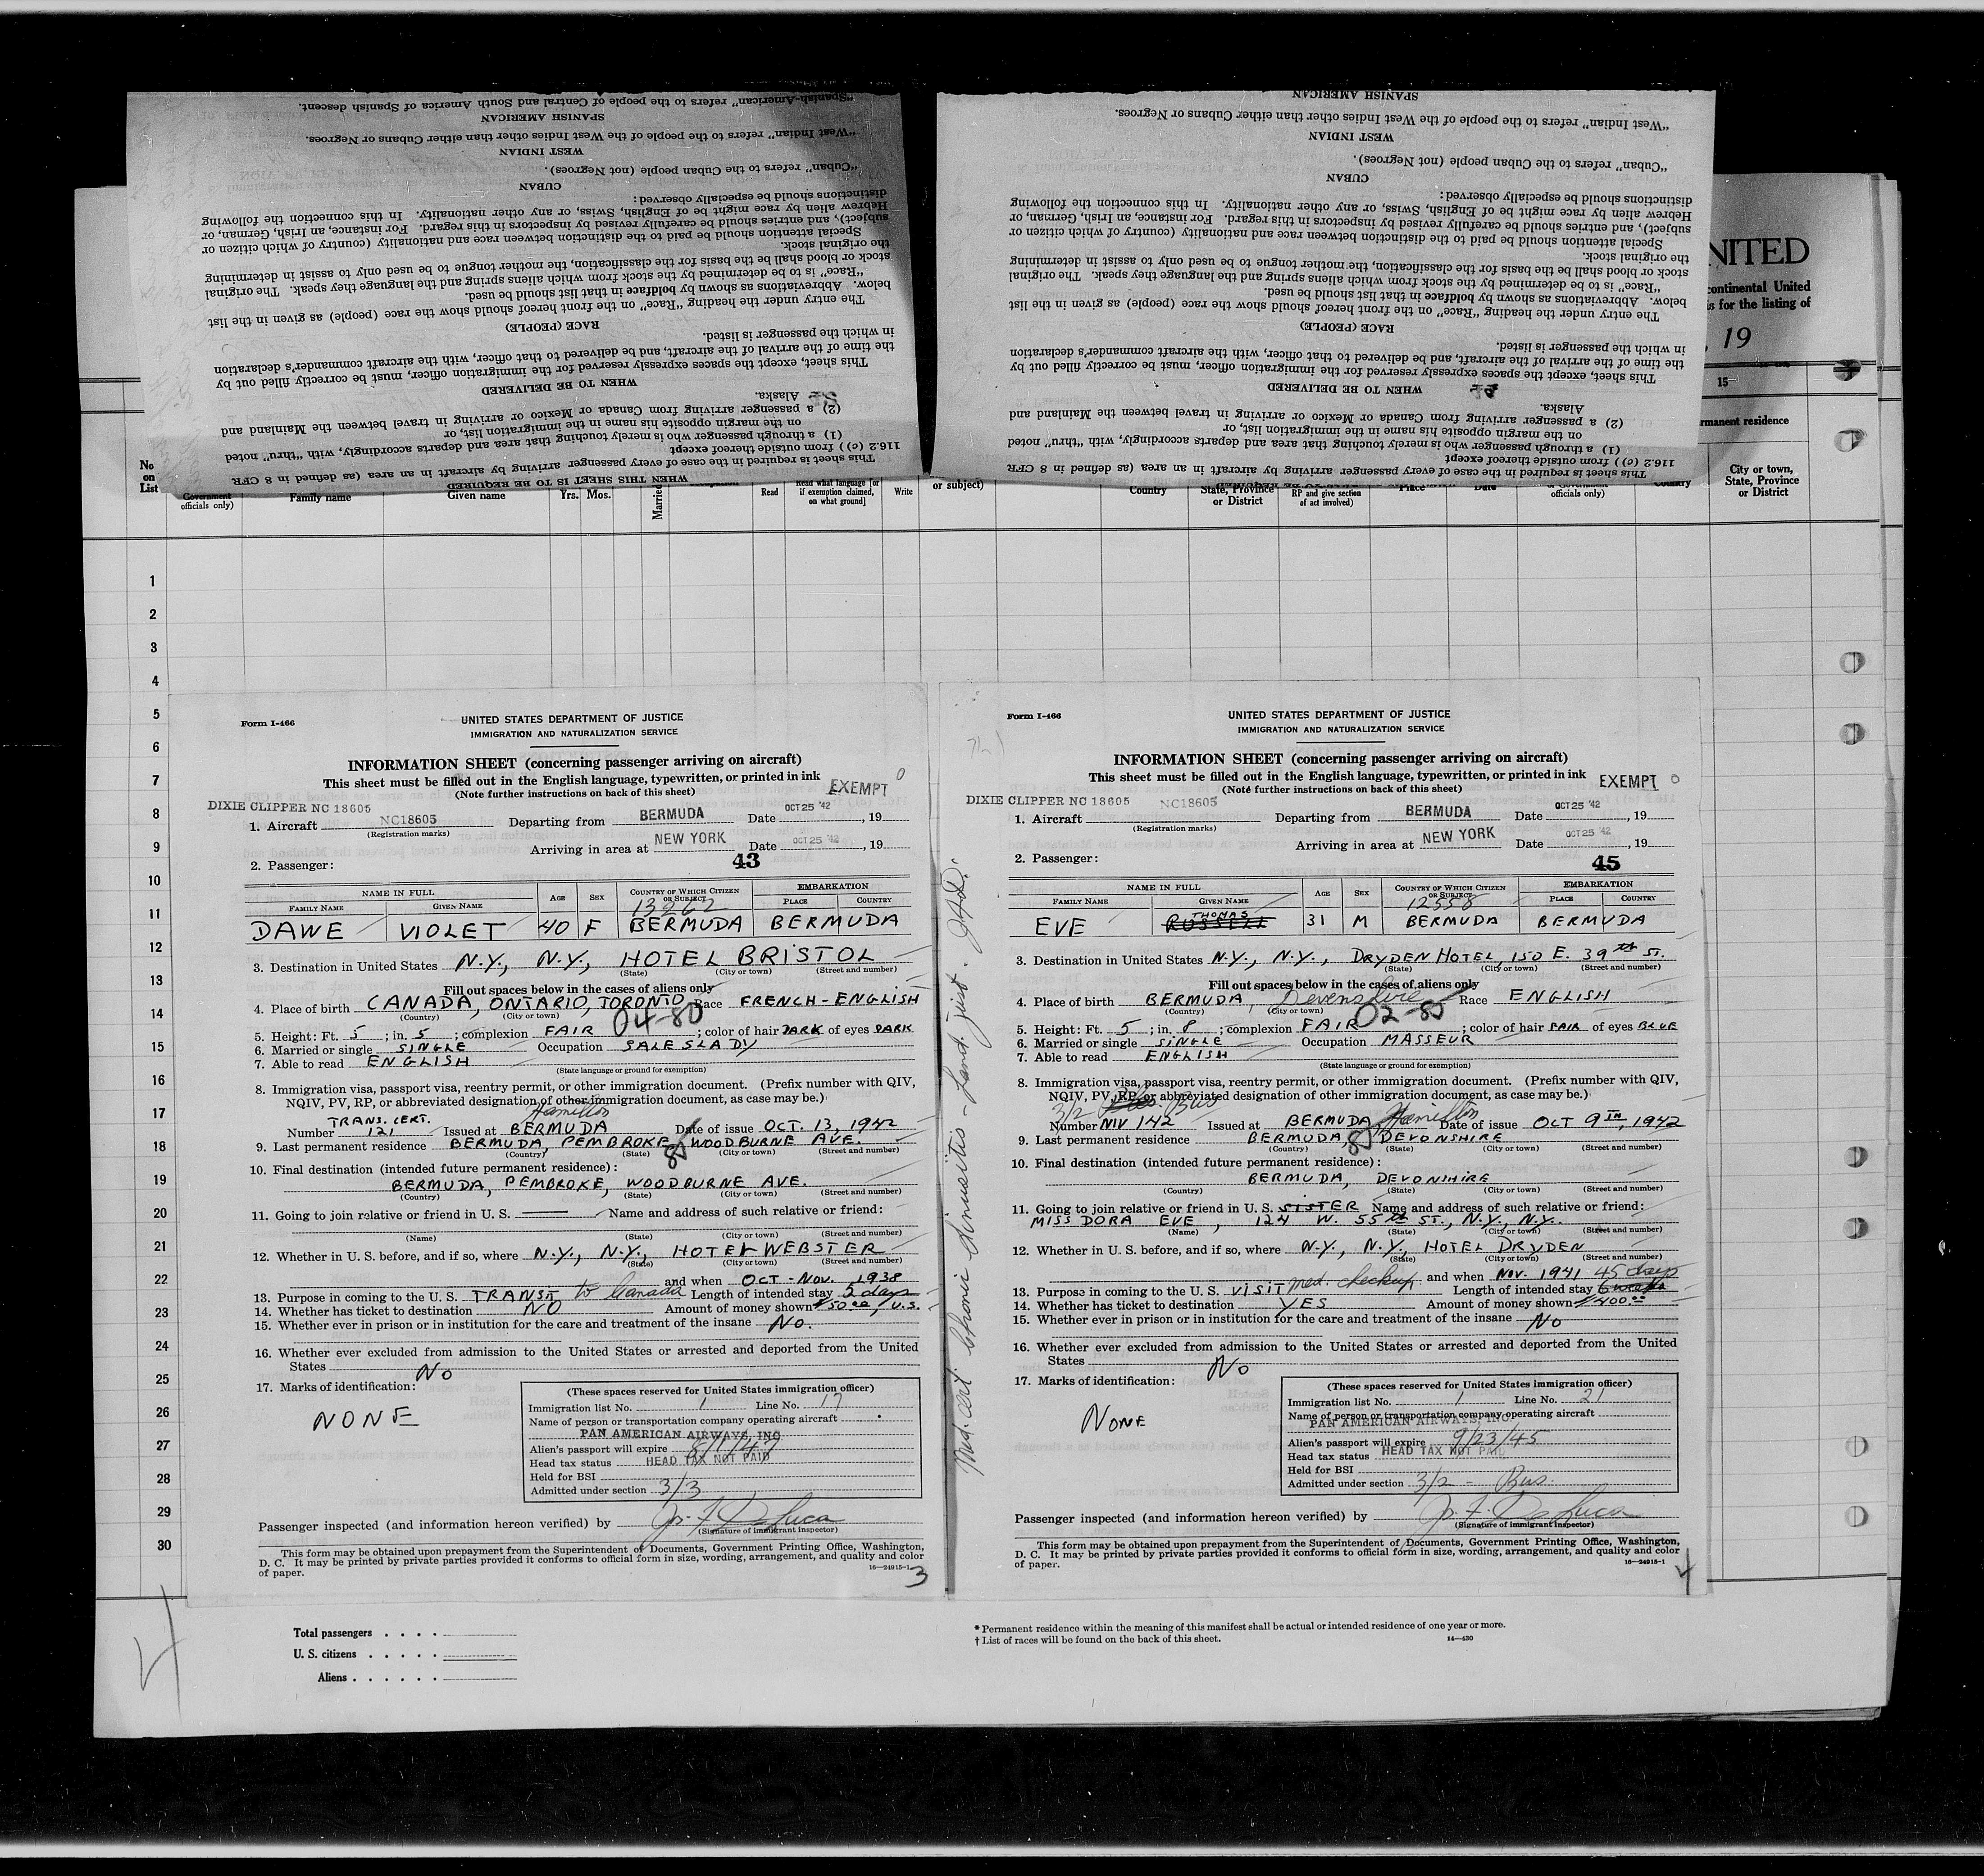 "Spanish-American" refers to the people of Central and South America of Spanish descent.
SPANISH AMERICAN
"West Indian" refers to the people of the West Indies other than either Cubans or Negroes.
WEST INDIAN
"Cuban" refers to the Cuban people (not Negroes).
CUBAN
distinctions should be especially observed:
Hebrew alien by race might be of English, Swiss, or any other nationality. In this connection the following
subject), and entries should be carefully revised by inspectors in this regard. For instance, an Irish, German, or
Special attention should be paid to the distinction between race and nationality (country of which citizen or
the original stock.
stock or blood shall be the basis for the classification, the mother tongue to be used only to assist in determining
"Race" is to be determined by the stock from which aliens spring and the language they speak. The original
below. Abbreviations as shown by boldface in that list should be used.
The entry under the heading "Race" on the front hereof should show the race (people) as given in the list
RACE (PEOPLE)
in which the passenger is listed.
the time of the arrival of the aircraft, and be delivered to that officer, with the aircraft commander's declaration
This sheet, except the spaces expressly reserved for the immigration officer, must be correctly filled out by
WHEN TO BE DELIVERED
Alaska.
(2) a passenger arriving from Canada or Mexico or arriving in travel between the Mainland and
on the margin opposite his name in the immigration list, or
(1) a through passenger who is merely touching that area and departs accordingly, with "thru" noted
116.2 (c) ) from outside thereof except
This sheet is required in the case of every passenger arriving by aircraft in an area (as defined in 8 CFR
WHEN THIS SHEET IS TO BE REQUIRED
SPANISH AMERICAN
"West Indian" refers to the people of the West Indies other than either Cubans or Negroes.
WEST INDIAN
"Cuban" refers to the Cuban people (not Negroes).
CUBAN
distinctions should be especially observed:
Hebrew alien by race might be of English, Swiss, or any other nationality. In this connection the following
subject), and entries should be carefully revised by inspectors in this regard. For instance, an Irish, German, or
Special attention should be paid to the distinction between race and nationality (country of which citizen or
the original stock.
stock or blood shall be the basis for the classification, the mother tongue to be used only to assist in determining
"Race" is to be determined by the stock from which aliens spring and the language they speak. The original
below. Abbreviations as shown by boldface in that list should be used.
The entry under the heading "Race" on the front hereof should show the race (people) as given in the list
RACE (PEOPLE)
in which the passenger is listed.
the time of the arrival of the aircraft, and be delivered to that officer, with the aircraft commander's declaration
This sheet, except the spaces expressly reserved for the immigration officer, must be correctly filled out by
WHEN TO BE DELIVERED
Alaska.
(2) a passenger arriving from Canada or Mexico or arriving in travel between the Mainland and
on the margin opposite his name in the immigration list, or
(1) a through passenger who is merely touching that area and departs accordingly, with "thru" noted
116.2 (c) ) from outside thereof except
This sheet is required in the case of every passenger arriving by aircraft in an area (as defined in 8 CFR
NITED
continental United
is for the listing of
19
15
rmanent residence
City or town,
State, Province
or District
No
on
List
Government
officials only)
Family name
Given name
Yrs. Mos.
Married
Read
Read what language [or
if exemption claimed,
on what ground]
Write
or subject)
Country
State, Province
or District
RP and give section
of act involved)
Place
Date
officials only)
Country
1
2
3
4
5
6
7
8
9
10
11
12
13
14
15
16
17
18
19
20
21
22
23
24
25
26
27
28
29
30
Form I-466
UNITED STATES DEPARTMENT OF JUSTICE
IMMIGRATION AND NATURALIZATION SERVICE
INFORMATION SHEET (concerning passenger arriving on aircraft)
This sheet must be filled out in the English language, typewritten, or printed in ink
(Note further instructions on back of this sheet)
EXEMPT 0
DIXIE CLIPPER NC 18605
1. Aircraft NC18605 Departing from BERMUDA Date OCT 25 '42, 19
(Registration marks)
Arriving in area at NEW YORK Date OCT 25 '42, 19
2. Passenger: 43
NAME IN FULL AGE SEX COUNTRY OF WHICH CITIZEN OR SUBJECT EMBARKATION
FAMILY NAME GIVEN NAME PLACE COUNTRY
13262
DAWE VIOLET 40 F BERMUDA BERMUDA
3. Destination in United States N.Y., N.Y., HOTEL BRISTOL
(State) (City or town) (Street and number)
Fill out spaces below in the cases of aliens only
4. Place of birth CANADA, ONTARIO, TORONTO Race FRENCH-ENGLISH
(Country) (City or town)
04-80
5. Height: Ft. 5; in. 5; complexion FAIR; color of hair DARK of eyes DARK
6. Married or single SINGLE Occupation SALESLADY
7. Able to read ENGLISH
(State language or ground for exemption)
8. Immigration visa, passport visa, reentry permit, or other immigration document. (Prefix number with QIV,
NQIV, PV, RP, or abbreviated designation of other immigration document, as case may be.)
Hamilton
TRANS. CERT.
Number 121 Issued at BERMUDA Date of issue OCT. 13, 1942
9. Last permanent residence BERMUDA, PEMBROKE, WOODBURNE AVE.
(Country) (State) (City or town) (Street and number)
80
10. Final destination (intended future permanent residence):
BERMUDA, PEMBROKE, WOODBURNE AVE.
(Country) (State) (City or town) (Street and number)
11. Going to join relative or friend in U. S. — Name and address of such relative or friend:
(Name) (State) (City or town) (Street and number)
12. Whether in U. S. before, and if so, where N.Y., N.Y., HOTEL WEBSTER
(State) (City or town) (Street and number)
and when OCT-NOV. 1938
13. Purpose in coming to the U. S. TRANSIT to Canada Length of intended stay 2 days
14. Whether has ticket to destination NO Amount of money shown $50.00 U.S.
15. Whether ever in prison or in institution for the care and treatment of the insane No.
16. Whether ever excluded from admission to the United States or arrested and deported from the United
States No
17. Marks of identification:
NONE
(These spaces reserved for United States immigration officer)
Immigration list No. 1 Line No. 17
Name of person or transportation company operating aircraft
PAN AMERICAN AIRWAYS, INC
Alien's passport will expire 8/1/47
Head tax status HEAD TAX NOT PAID
Held for BSI
Admitted under section 3/3
Passenger inspected (and information hereon verified) by
(Signature of immigrant inspector)
This form may be obtained upon prepayment from the Superintendent of Documents, Government Printing Office, Washington,
D. C. It may be printed by private parties provided it conforms to official form in size, wording, arrangement, and quality and color
of paper. 16—24915-1
3
Med. cert. Chronic sinusitis
Form I-466
UNITED STATES DEPARTMENT OF JUSTICE
IMMIGRATION AND NATURALIZATION SERVICE
INFORMATION SHEET (concerning passenger arriving on aircraft)
This sheet must be filled out in the English language, typewritten, or printed in ink
(Note further instructions on back of this sheet)
EXEMPT 0
DIXIE CLIPPER NC 18605 NC18605
1. Aircraft Departing from BERMUDA Date OCT 25 '42, 19
(Registration marks)
Arriving in area at NEW YORK Date OCT 25 '42, 19
2. Passenger: 45
NAME IN FULL AGE SEX COUNTRY OF WHICH CITIZEN OR SUBJECT EMBARKATION
FAMILY NAME GIVEN NAME PLACE COUNTRY
12558
EVE THOMAS RUSSELL 31 M BERMUDA BERMUDA
3. Destination in United States N.Y., N.Y., DRYDEN HOTEL, 150 E. 39th ST.
(State) (City or town) (Street and number)
Fill out spaces below in the cases of aliens only
4. Place of birth BERMUDA, Devonshire Race ENGLISH
(Country) (City or town)
02-80
5. Height: Ft. 5; in. 8; complexion FAIR; color of hair FAIR of eyes BLUE
6. Married or single SINGLE Occupation MASSEUR
7. Able to read ENGLISH
(State language or ground for exemption)
8. Immigration visa, passport visa, reentry permit, or other immigration document. (Prefix number with QIV,
NQIV, PV, RP, or abbreviated designation of other immigration document, as case may be.)
3/2 Bus
Number NIV 142 Issued at BERMUDA, Hamilton Date of issue OCT 9TH, 1942
9. Last permanent residence BERMUDA, DEVONSHIRE
(Country) (State) (City or town) (Street and number)
80
10. Final destination (intended future permanent residence):
BERMUDA, DEVONSHIRE
(Country) (State) (City or town) (Street and number)
11. Going to join relative or friend in U. S. SISTER Name and address of such relative or friend:
MISS DORA EVE, 124 W. 55th ST., N.Y., N.Y.
(Name) (State) (City or town) (Street and number)
12. Whether in U. S. before, and if so, where N.Y., N.Y., HOTEL DRYDEN
(State) (City or town) (Street and number)
and when NOV. 1941
13. Purpose in coming to the U. S. VISIT med. checkup Length of intended stay 45 days
14. Whether has ticket to destination YES Amount of money shown $400.00
15. Whether ever in prison or in institution for the care and treatment of the insane No
16. Whether ever excluded from admission to the United States or arrested and deported from the United
States No
17. Marks of identification:
NONE
(These spaces reserved for United States immigration officer)
Immigration list No. 1 Line No. 21
Name of person or transportation company operating aircraft
PAN AMERICAN AIRWAYS, INC
Alien's passport will expire 9/23/45
Head tax status HEAD TAX NOT PAID
Held for BSI
Admitted under section 3/2 - Bus.
Passenger inspected (and information hereon verified) by
(Signature of immigrant inspector)
This form may be obtained upon prepayment from the Superintendent of Documents, Government Printing Office, Washington,
D. C. It may be printed by private parties provided it conforms to official form in size, wording, arrangement, and quality and color
of paper. 16—24915-1
4
Total passengers
U. S. citizens
Aliens
* Permanent residence within the meaning of this manifest shall be actual or intended residence of one year or more.
† List of races will be found on the back of this sheet. 14—430